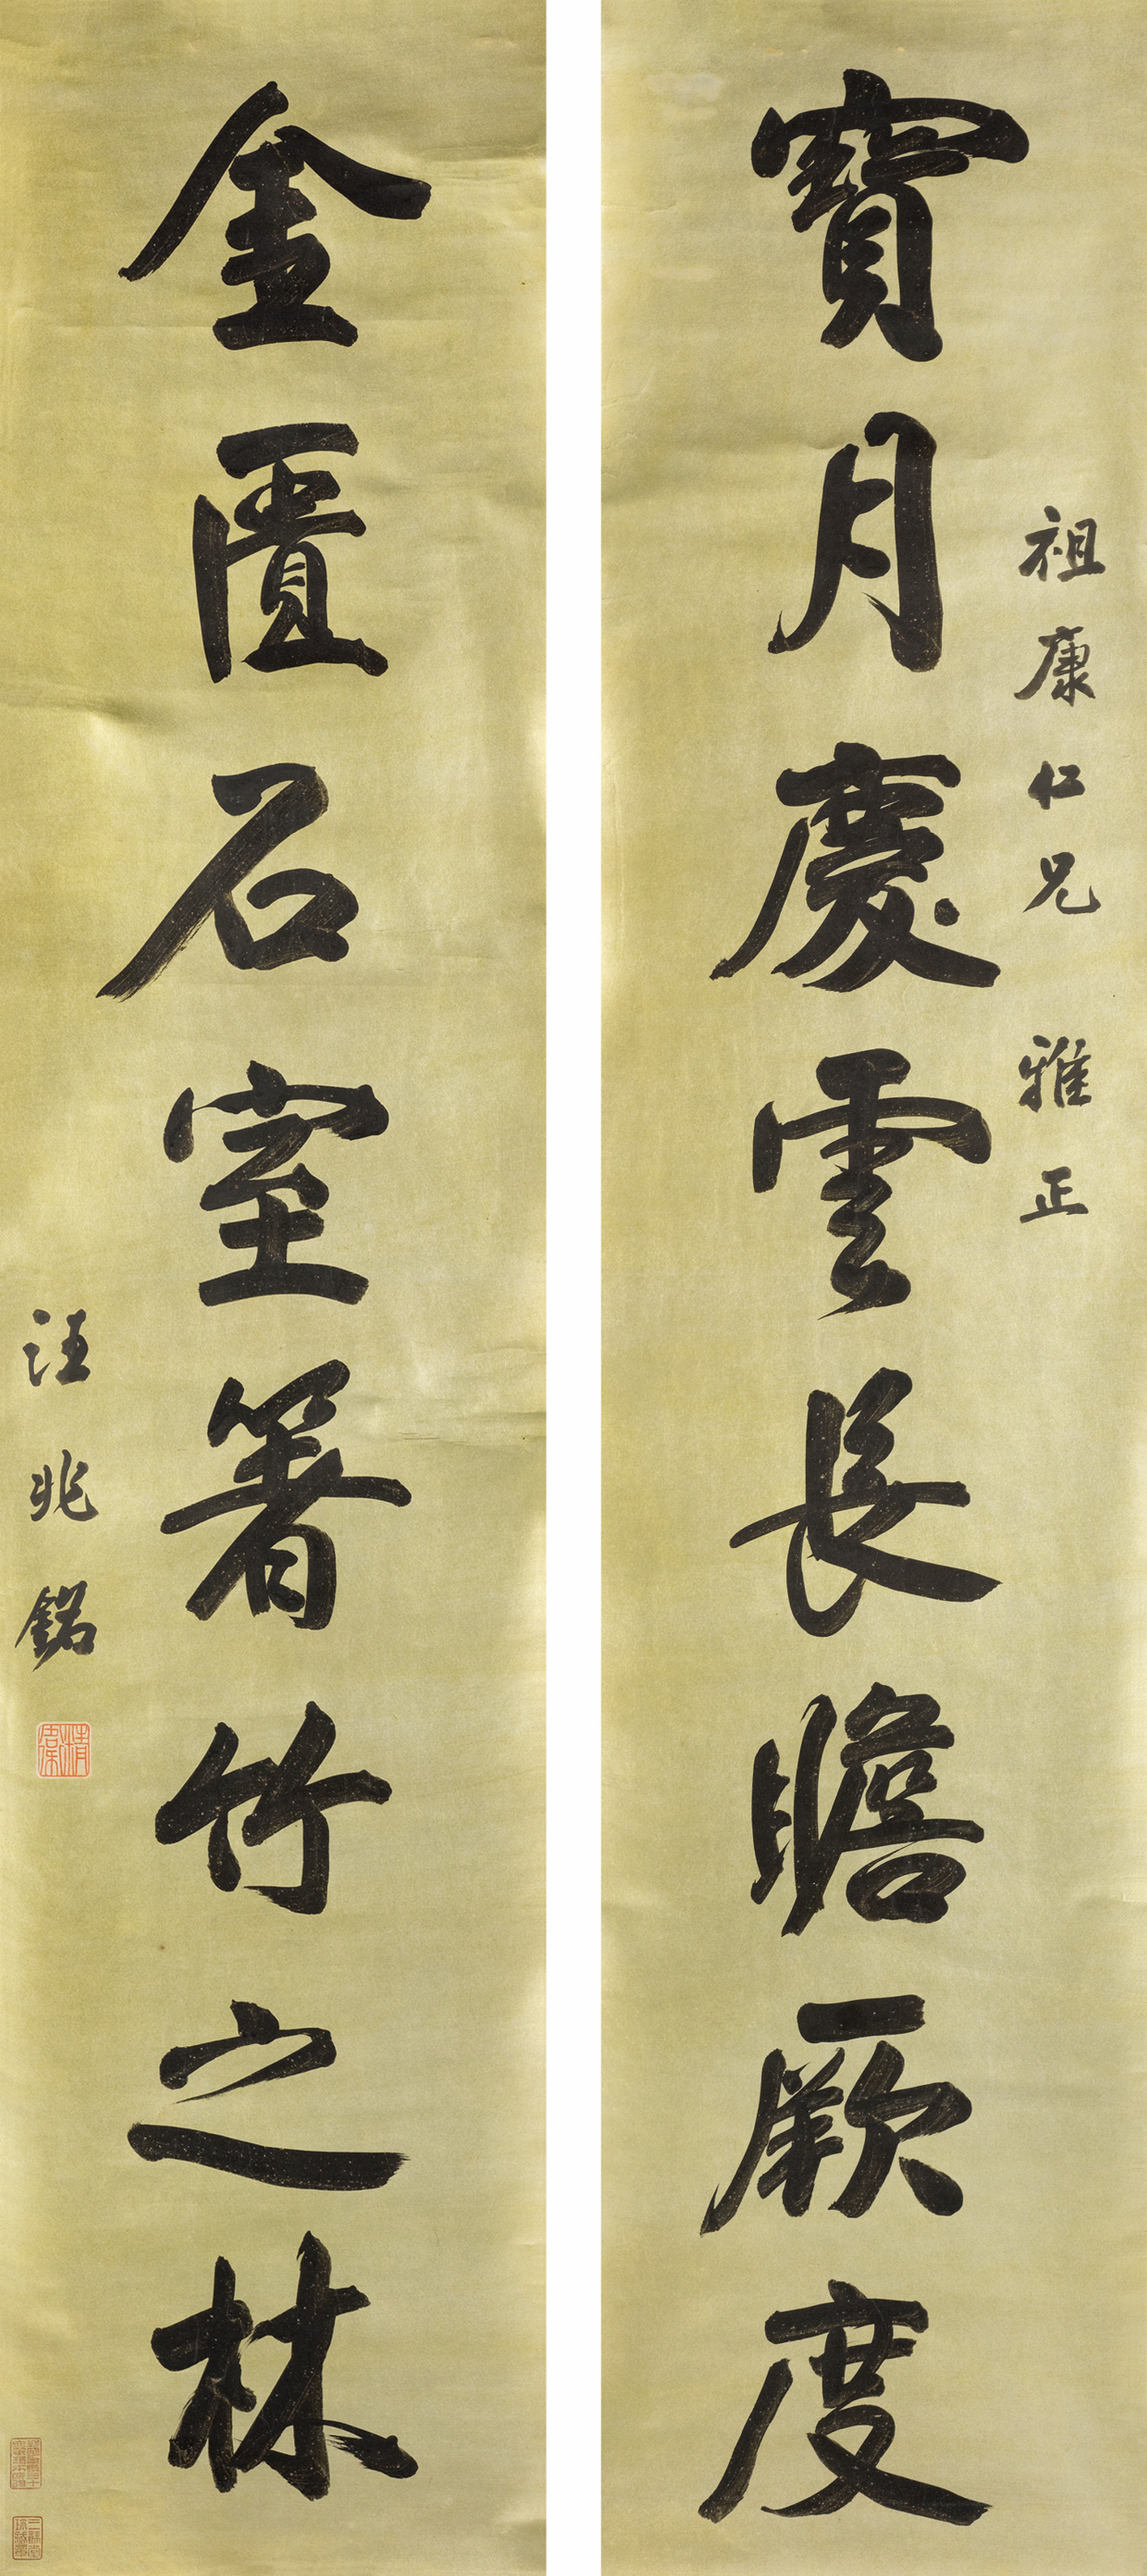 寶月慶雲長瞻厥度
祖康仁兄 雅正
金匱石室箸竹之林
汪兆銘
精衛